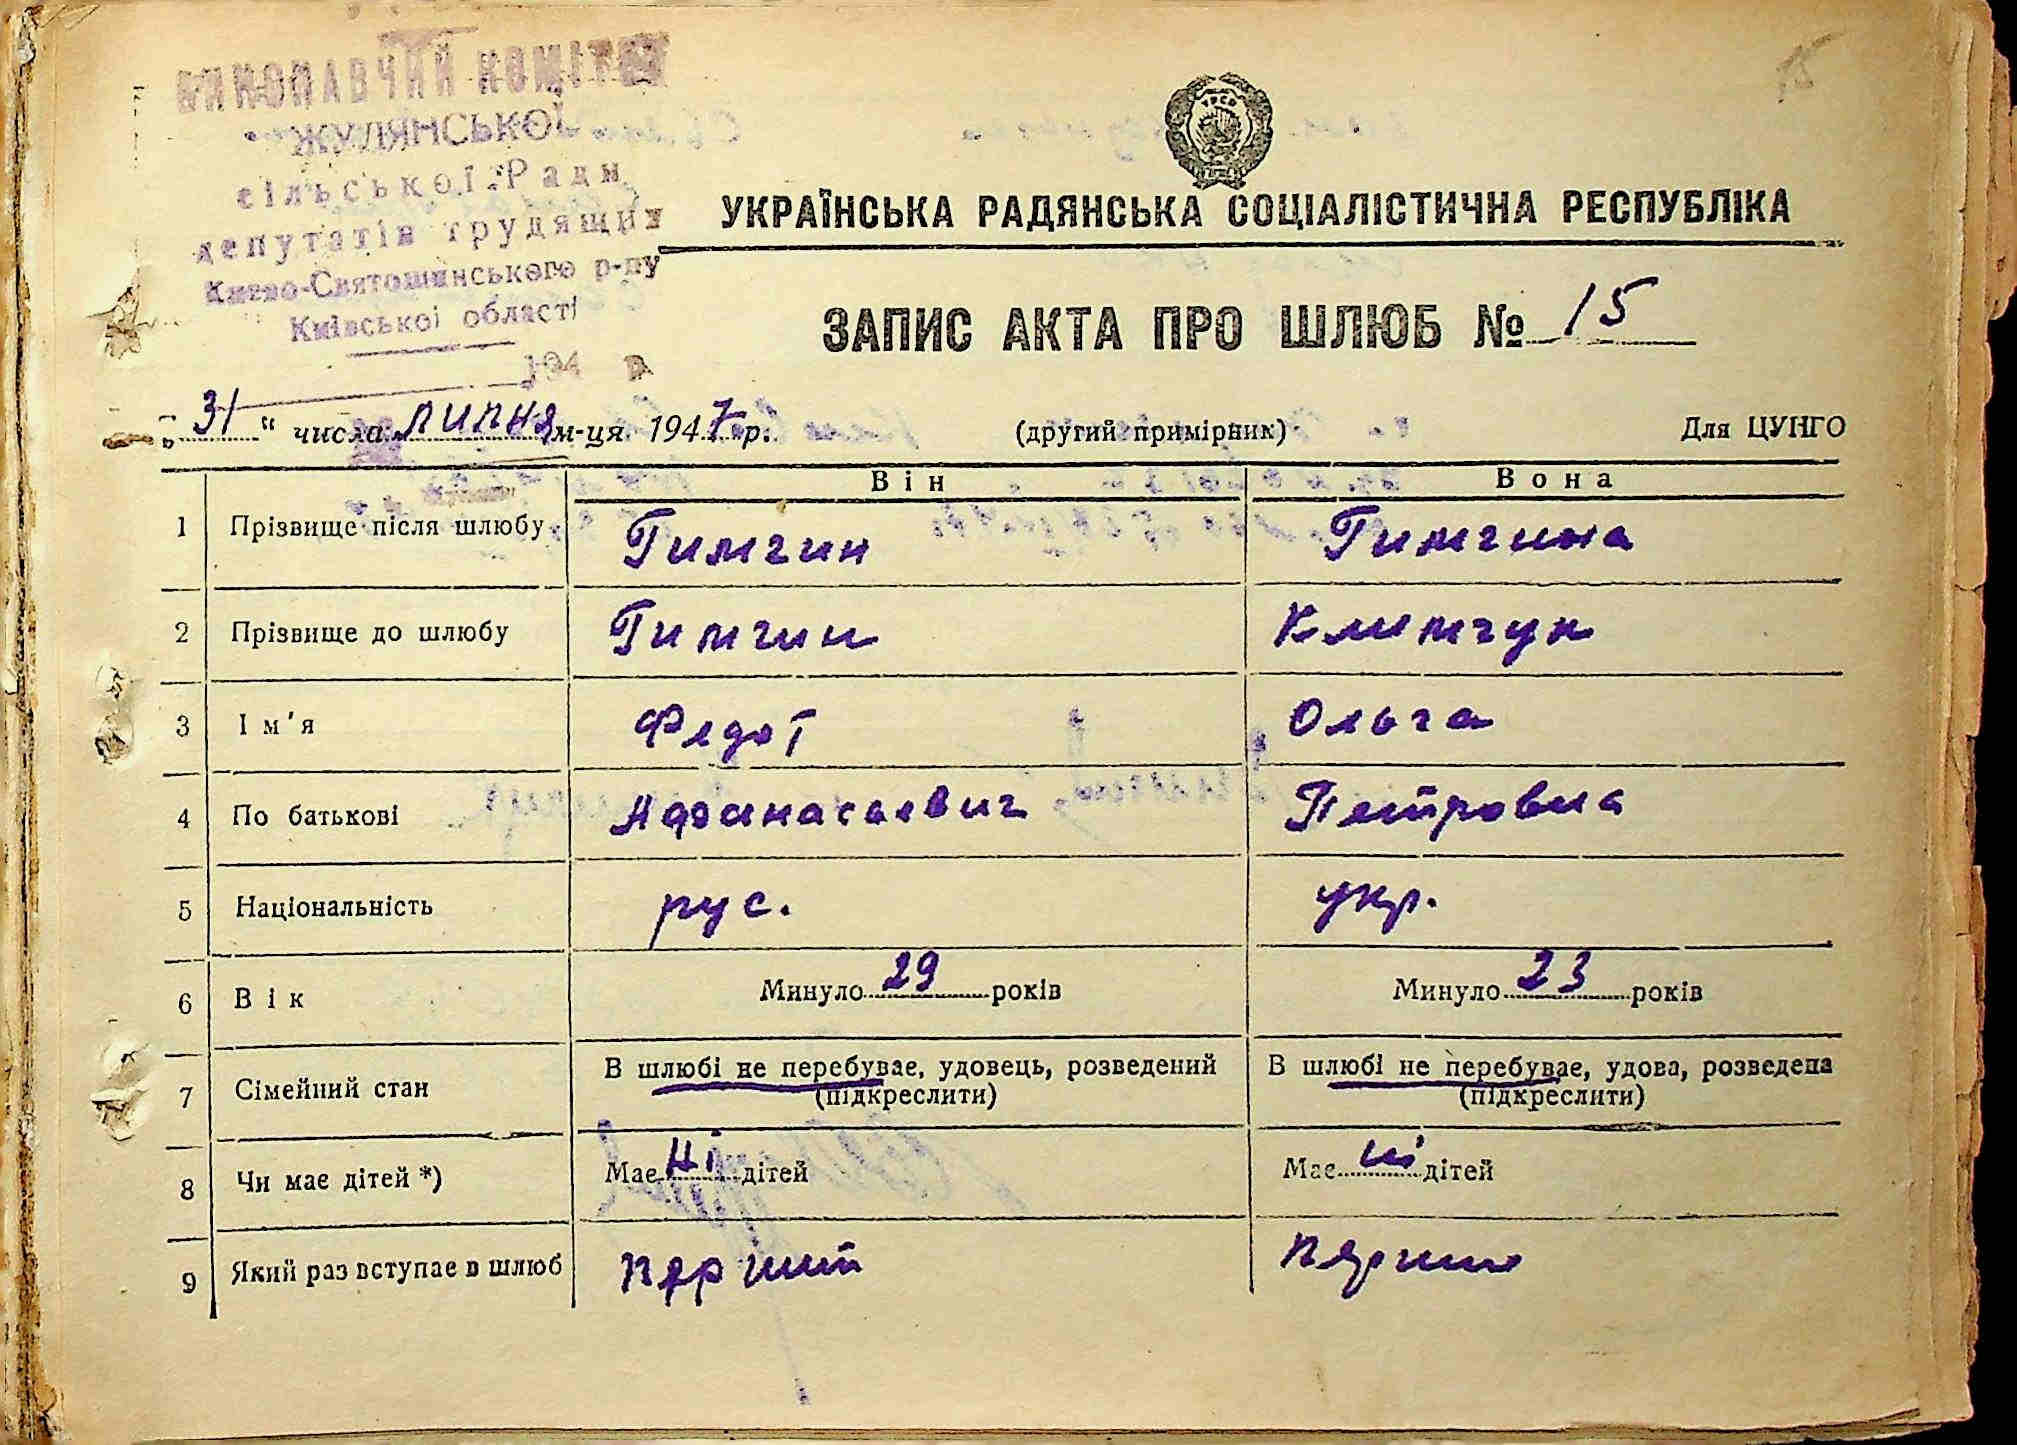 15
ВИКОНАВЧИЙ КОМІТЕТ
ЖУЛЯНСЬКОЇ
сільської Ради
депутатів трудящих
Києво-Святошинського р-ну
Київської області
194 р.
УКРАЇНСЬКА РАДЯНСЬКА СОЦІАЛІСТИЧНА РЕСПУБЛІКА
ЗАПИС АКТА ПРО ШЛЮБ № 15
„31“ числа липня м-ця 1947 р. (другий примірник) Для ЦУНГО
Він Вона
1 Прізвище після шлюбу
2 Прізвище до шлюбу Климчук
3 Ім'я Федот Ольга
4 По батькові Афанасьевич Петровна
5 Національність рус. укр.
6 Вік Минуло 29 років Минуло 23 років
7 Сімейний стан В шлюбі не перебуває, удовець, розведений (підкреслити) В шлюбі не перебуває, удова, розведена (підкреслити)
8 Чи має дітей *) Має ні дітей Має ні дітей
9 Який раз вступає в шлюб перший перший